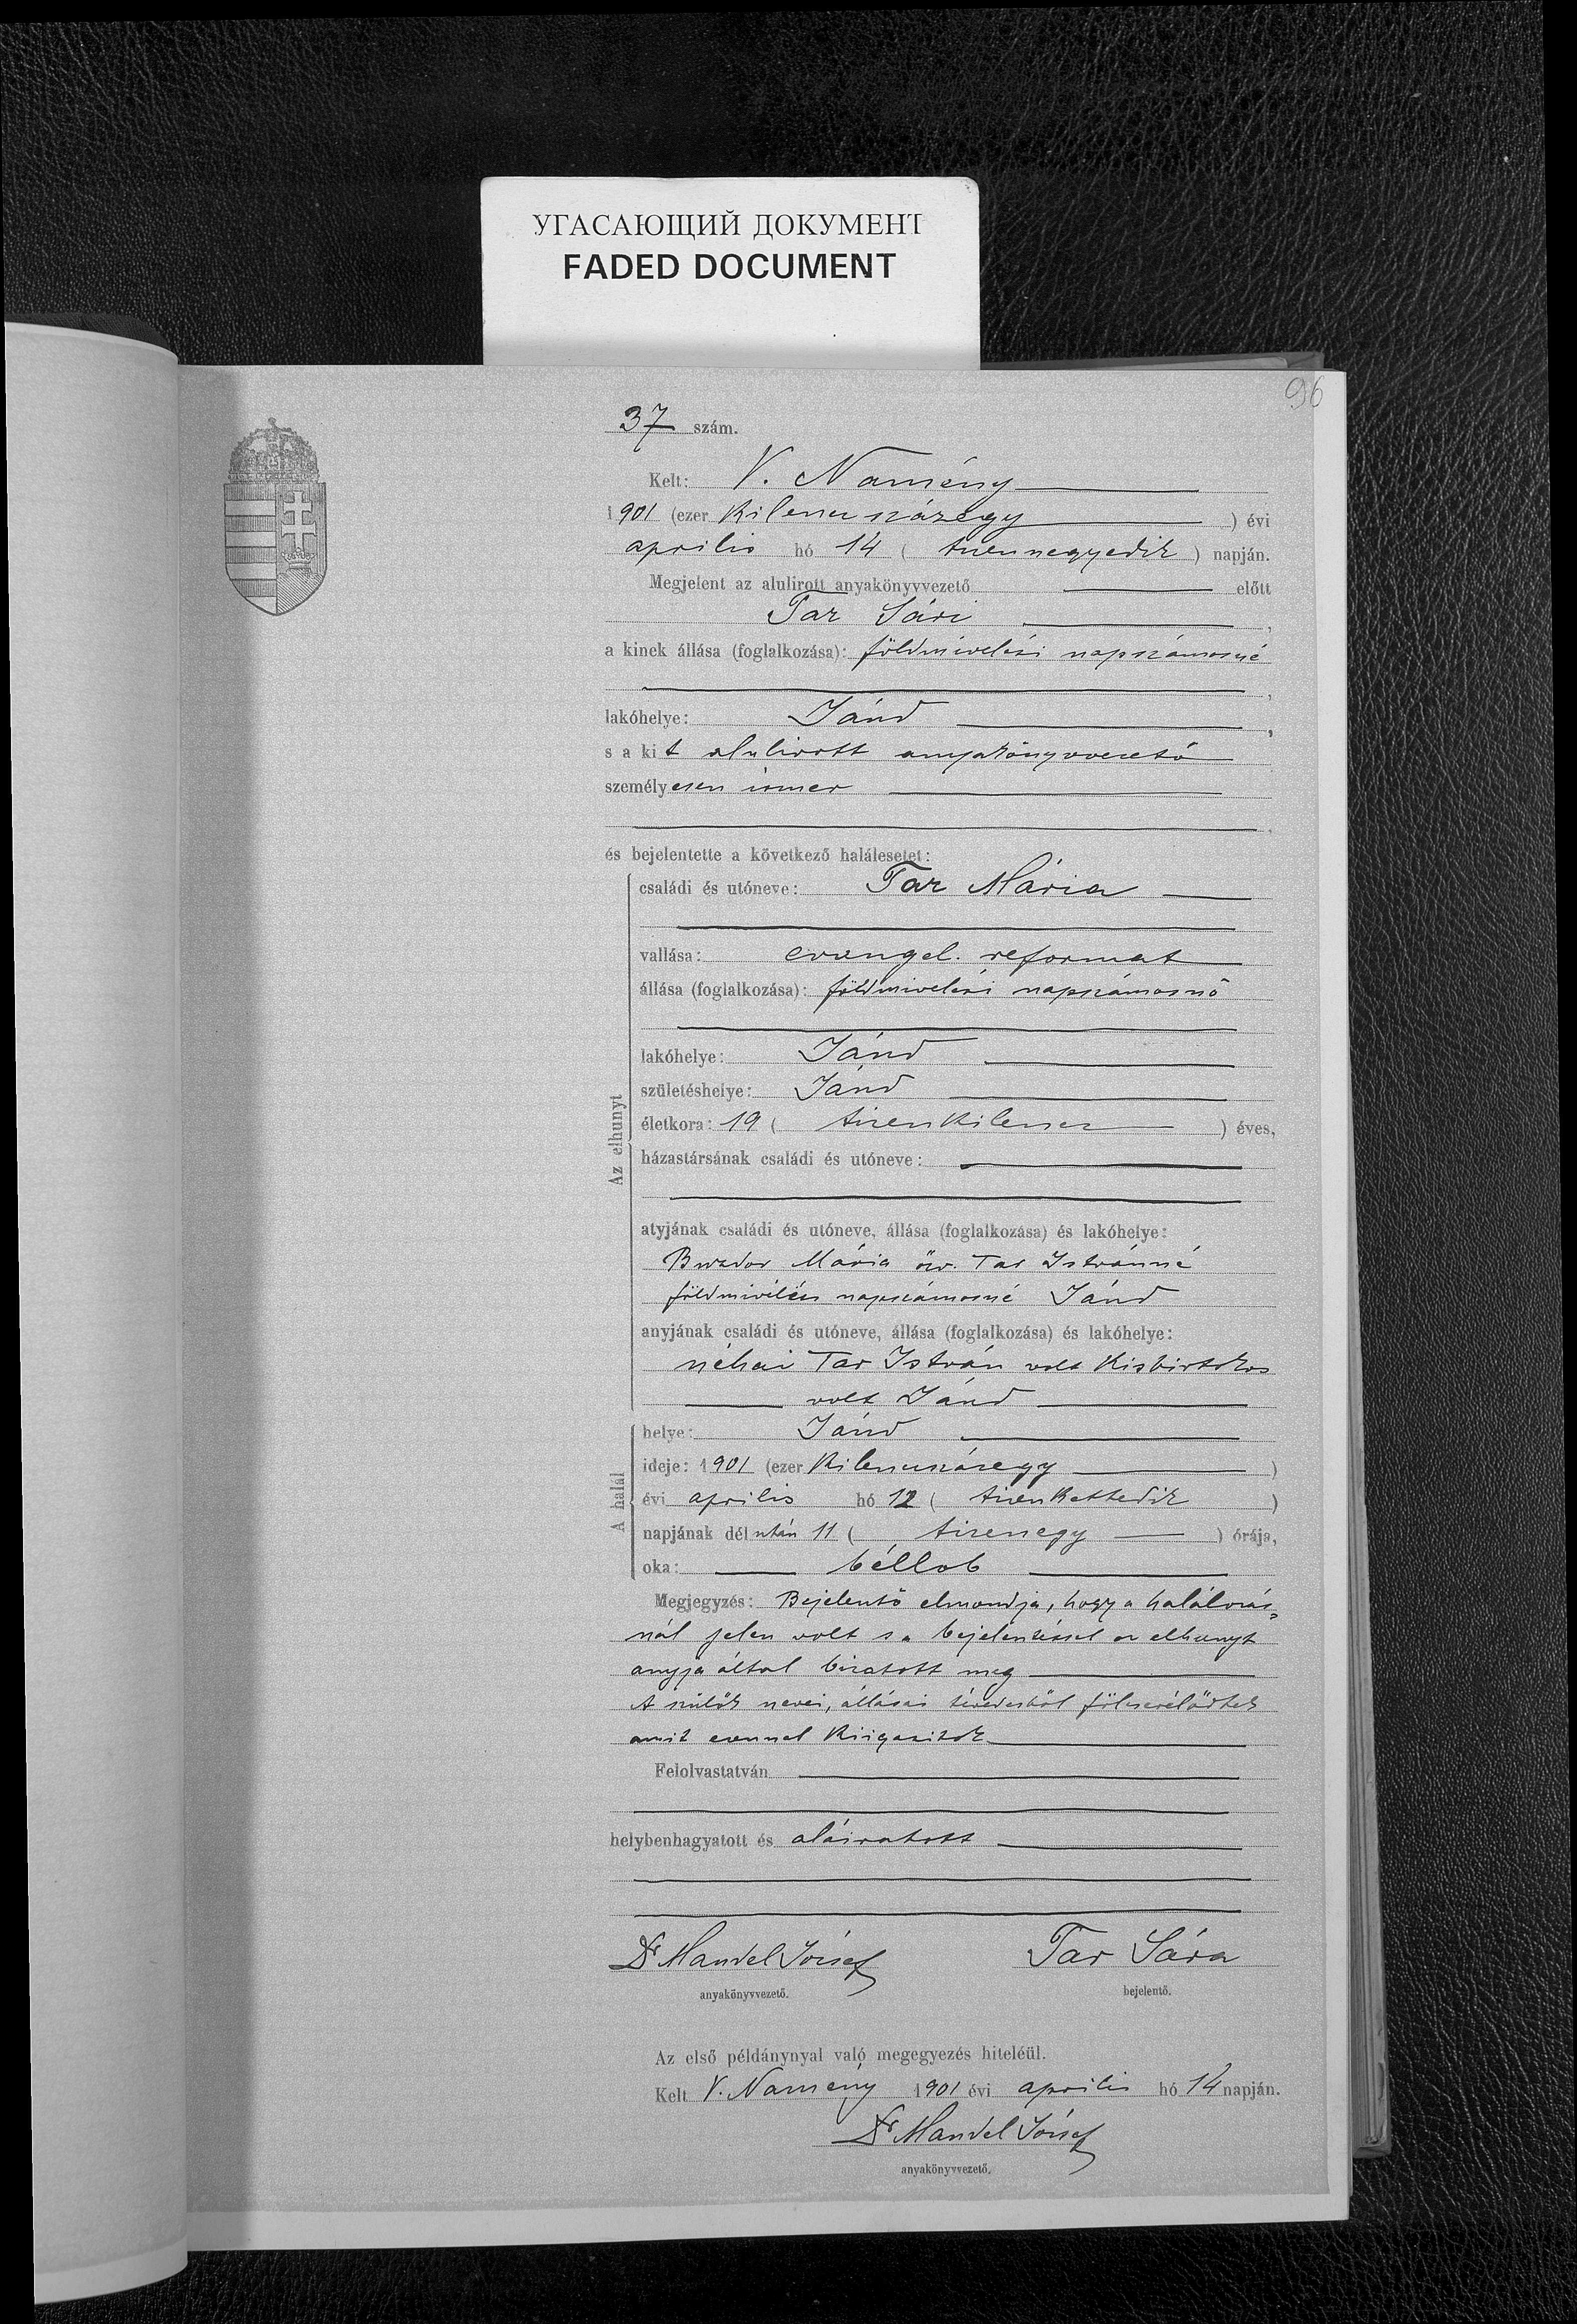 УГАСАЮЩИЙ ДОКУМЕНТ
FADED DOCUMENT
96
37 szám.
Kelt: V. Namény
1901 (ezer kilencszázegy) évi
április hó 14 (tizennegyedik) napján.
Megjelent az alulirott anyakönyvvezető előtt
Tar Sári,
a kinek állása (foglalkozása): földmivelési napszámosné
lakóhelye: Jánd,
s a kit alulirott anyakönyvvezető
személyesen ismer
és bejelentette a következő halálesetet:
Az elhunyt
családi és utóneve: Tar Mária
vallása: evangel. reformat
állása (foglalkozása): földmivelési napszámosnő
lakóhelye: Jánd
születéshelye: Jánd
életkora: 19 (tizenkilenc) éves,
házastársának családi és utóneve:
atyjának családi és utóneve, állása (foglalkozása) és lakóhelye:
Mária özv. Tar Istvánné
földmivelési napszámosné Jánd
anyjának családi és utóneve, állása (foglalkozása) és lakóhelye:
néhai Tar István volt kisbirtokos
volt Jánd
A halál
helye: Jánd
ideje: 1901 (ezer kilencszázegy)
évi április hó 12 (tizenkettedik)
napjának délután 11 (tizenegy) órája,
oka: béllob
Megjegyzés: Bejelentő elmondja, hogy a halálozás-
nál jelen volt s a bejelentéssel az elhunyt
anyja által bizatott meg
A szülők nevei, állásai tévedésből fölcserélődtek
amit ezennel kiigazitok
Felolvastatván
helybenhagyatott és aláiratott
Dr Mandel József
Tar Sára
anyakönyvvezető.
bejelentő.
Az első példánynyal való megegyezés hiteléül.
Kelt V. Namény 1901 évi április hó 14 napján.
Dr Mandel József
anyakönyvvezető.